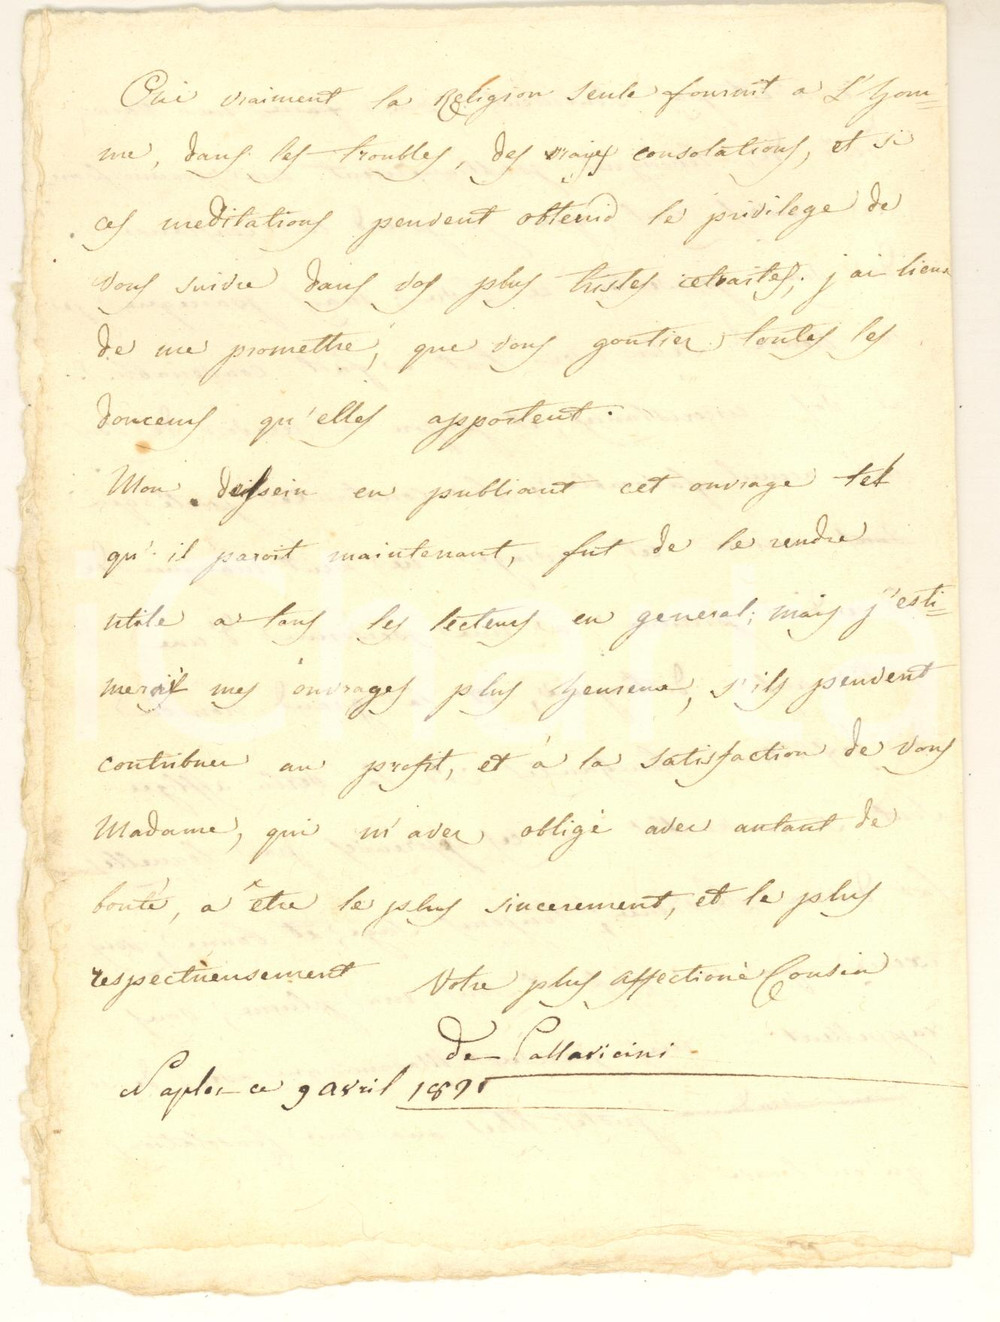 Oui vraiment la Religion seule fournit a L'hom=
me, dans les troubles, des vrayes consolations, et si
ces meditations peuvent obtenir le privilege de
vous suivre dans vos plus tristes retraites; j'ai lieux
de me promettre, que vous goutiez toutes les
douceurs qu'elles apportent.
Mon dessein en publiant cet ouvrage tel
qu'il paroit maintenant, fut de le rendre
utile a tous les lecteurs en general; mais j'esti=
merois mes ouvrages plus heureux, s'ils peuvent
contribuer au profit, et à la satisfaction de vous
Madame, qui m'avez obligé avec autant de
bonté, a être le plus sincerement, et le plus
respectueusement Votre plus affectioné Cousin
de Pallavicini
Naples ce 9 avril
iCharta